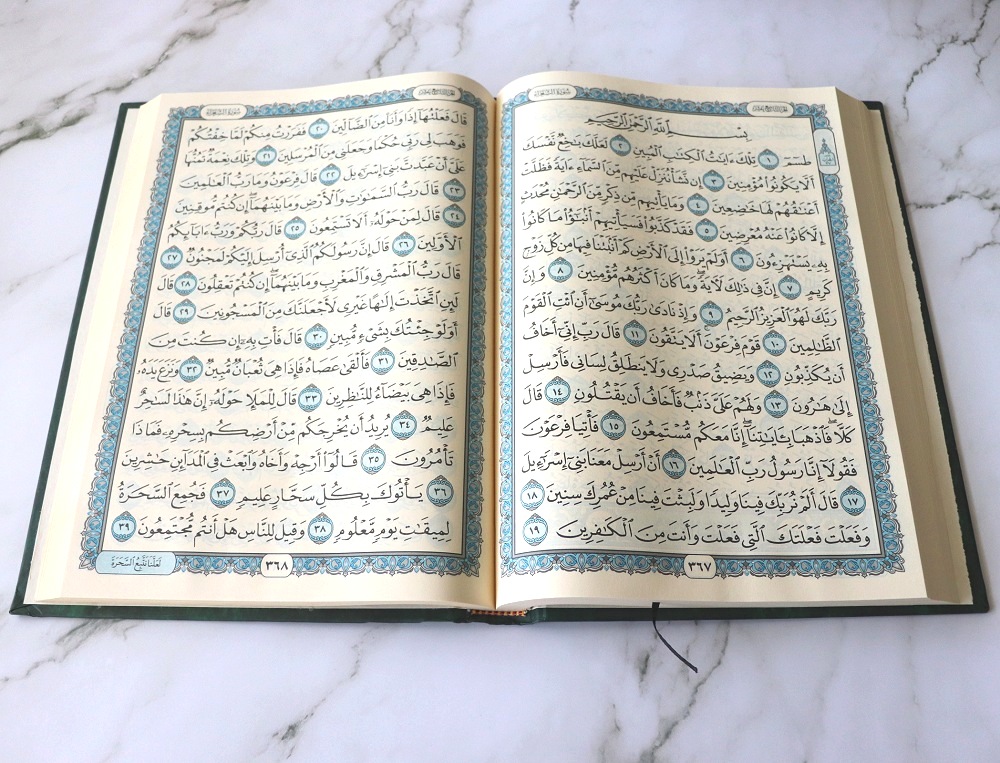 سُورَةُ الشُّعَرَاءِ
بِسْمِ اللَّهِ الرَّحْمَٰنِ الرَّحِيمِ
طسٓمٓ ١ تِلْكَ ءَايَٰتُ ٱلْكِتَٰبِ ٱلْمُبِينِ ٢ لَعَلَّكَ بَٰخِعٌ نَّفْسَكَ
أَلَّا يَكُونُوا۟ مُؤْمِنِينَ ٣ إِن نَّشَأْ نُنَزِّلْ عَلَيْهِم مِّنَ ٱلسَّمَآءِ ءَايَةً فَظَلَّتْ
أَعْنَٰقُهُمْ لَهَا خَٰضِعِينَ ٤ وَمَا يَأْتِيهِم مِّن ذِكْرٍ مِّنَ ٱلرَّحْمَٰنِ مُحْدَثٍ
إِلَّا كَانُوا۟ عَنْهُ مُعْرِضِينَ ٥ فَقَدْ كَذَّبُوا۟ فَسَيَأْتِيهِمْ أَنۢبَٰٓؤُا۟ مَا كَانُوا۟
بِهِۦ يَسْتَهْزِءُونَ ٦ أَوَلَمْ يَرَوْا۟ إِلَى ٱلْأَرْضِ كَمْ أَنۢبَتْنَا فِيهَا مِن كُلِّ زَوْجٍ
كَرِيمٍ ٧ إِنَّ فِى ذَٰلِكَ لَءَايَةً ۖ وَمَا كَانَ أَكْثَرُهُم مُّؤْمِنِينَ ٨ وَإِنَّ
رَبَّكَ لَهُوَ ٱلْعَزِيزُ ٱلرَّحِيمُ ٩ وَإِذْ نَادَىٰ رَبُّكَ مُوسَىٰٓ أَنِ ٱئْتِ ٱلْقَوْمَ
ٱلظَّٰلِمِينَ ١٠ قَوْمَ فِرْعَوْنَ ۚ أَلَا يَتَّقُونَ ١١ قَالَ رَبِّ إِنِّىٓ أَخَافُ
أَن يُكَذِّبُونِ ١٢ وَيَضِيقُ صَدْرِى وَلَا يَنطَلِقُ لِسَانِى فَأَرْسِلْ
إِلَىٰ هَٰرُونَ ١٣ وَلَهُمْ عَلَىَّ ذَنۢبٌ فَأَخَافُ أَن يَقْتُلُونِ ١٤ قَالَ
كَلَّا ۖ فَٱذْهَبَا بِـَٔايَٰتِنَآ ۖ إِنَّا مَعَكُم مُّسْتَمِعُونَ ١٥ فَأْتِيَا فِرْعَوْنَ
فَقُولَآ إِنَّا رَسُولُ رَبِّ ٱلْعَٰلَمِينَ ١٦ أَنْ أَرْسِلْ مَعَنَا بَنِىٓ إِسْرَٰٓءِيلَ
١٧ قَالَ أَلَمْ نُرَبِّكَ فِينَا وَلِيدًا وَلَبِثْتَ فِينَا مِنْ عُمُرِكَ سِنِينَ ١٨
وَفَعَلْتَ فَعْلَتَكَ ٱلَّتِى فَعَلْتَ وَأَنتَ مِنَ ٱلْكَٰفِرِينَ ١٩
٣٦٧
سُورَةُ الشُّعَرَاءِ
قَالَ فَعَلْتُهَآ إِذًا وَأَنَا۠ مِنَ ٱلضَّآلِّينَ ٢٠ فَفَرَرْتُ مِنكُمْ لَمَّا خِفْتُكُمْ
فَوَهَبَ لِى رَبِّى حُكْمًا وَجَعَلَنِى مِنَ ٱلْمُرْسَلِينَ ٢١ وَتِلْكَ نِعْمَةٌ تَمُنُّهَا
عَلَىَّ أَنْ عَبَّدتَّ بَنِىٓ إِسْرَٰٓءِيلَ ٢٢ قَالَ فِرْعَوْنُ وَمَا رَبُّ ٱلْعَٰلَمِينَ
٢٣ قَالَ رَبُّ ٱلسَّمَٰوَٰتِ وَٱلْأَرْضِ وَمَا بَيْنَهُمَآ ۖ إِن كُنتُم مُّوقِنِينَ
٢٤ قَالَ لِمَنْ حَوْلَهُۥٓ أَلَا تَسْتَمِعُونَ ٢٥ قَالَ رَبُّكُمْ وَرَبُّ ءَابَآئِكُمُ
ٱلْأَوَّلِينَ ٢٦ قَالَ إِنَّ رَسُولَكُمُ ٱلَّذِىٓ أُرْسِلَ إِلَيْكُمْ لَمَجْنُونٌ ٢٧
قَالَ رَبُّ ٱلْمَشْرِقِ وَٱلْمَغْرِبِ وَمَا بَيْنَهُمَآ ۖ إِن كُنتُمْ تَعْقِلُونَ ٢٨ قَالَ
لَئِنِ ٱتَّخَذْتَ إِلَٰهًا غَيْرِى لَأَجْعَلَنَّكَ مِنَ ٱلْمَسْجُونِينَ ٢٩ قَالَ
أَوَلَوْ جِئْتُكَ بِشَىْءٍ مُّبِينٍ ٣٠ قَالَ فَأْتِ بِهِۦٓ إِن كُنتَ مِنَ
ٱلصَّٰدِقِينَ ٣١ فَأَلْقَىٰ عَصَاهُ فَإِذَا هِىَ ثُعْبَانٌ مُّبِينٌ ٣٢ وَنَزَعَ يَدَهُۥ
فَإِذَا هِىَ بَيْضَآءُ لِلنَّٰظِرِينَ ٣٣ قَالَ لِلْمَلَإِ حَوْلَهُۥٓ إِنَّ هَٰذَا لَسَٰحِرٌ
عَلِيمٌ ٣٤ يُرِيدُ أَن يُخْرِجَكُم مِّنْ أَرْضِكُم بِسِحْرِهِۦ فَمَاذَا
تَأْمُرُونَ ٣٥ قَالُوٓا۟ أَرْجِهْ وَأَخَاهُ وَٱبْعَثْ فِى ٱلْمَدَآئِنِ حَٰشِرِينَ
٣٦ يَأْتُوكَ بِكُلِّ سَحَّارٍ عَلِيمٍ ٣٧ فَجُمِعَ ٱلسَّحَرَةُ
لِمِيقَٰتِ يَوْمٍ مَّعْلُومٍ ٣٨ وَقِيلَ لِلنَّاسِ هَلْ أَنتُم مُّجْتَمِعُونَ ٣٩
٣٦٨
لَعَلَّنَا نَتَّبِعُ السَّحَرَةَ